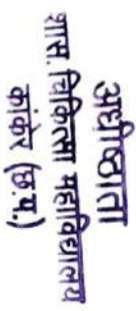 अधीष्ठाता
शास. चिकित्सा महाविद्यालय
कांकेर (छ.ग.)